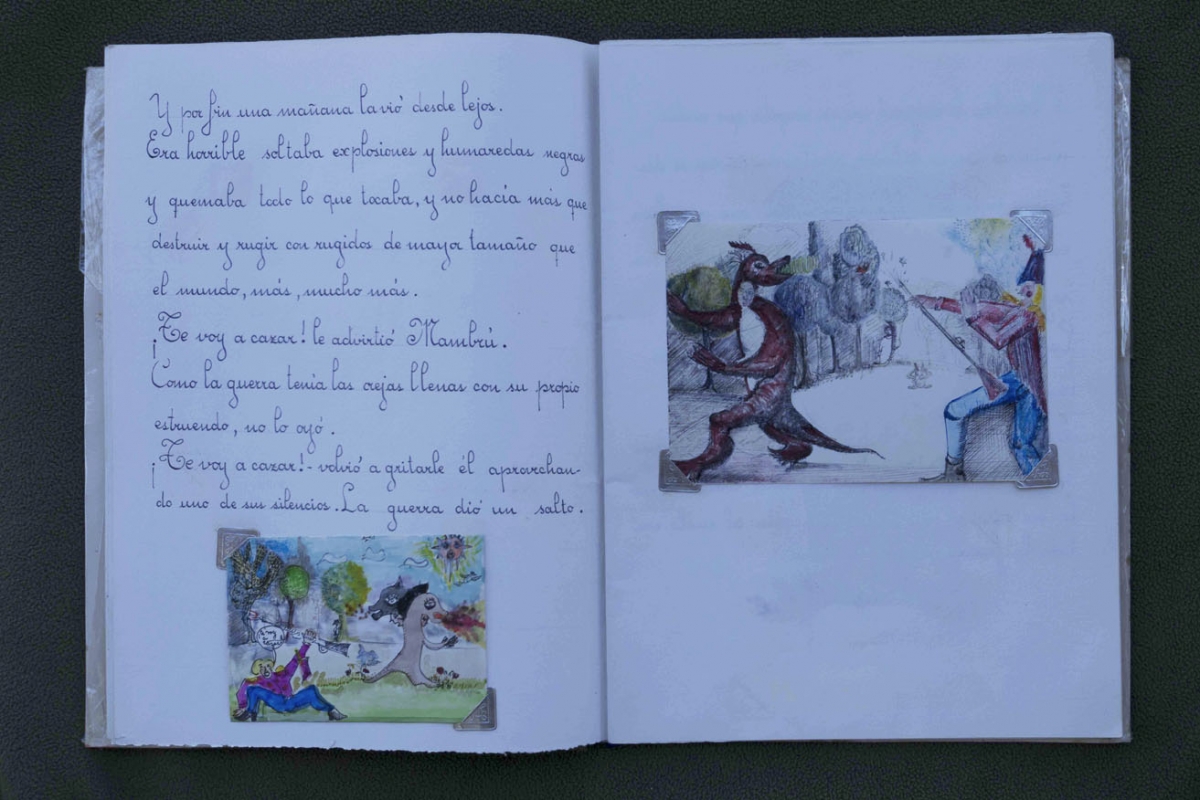 Y por fin una mañana la vió desde lejos.
Era horrible soltaba explosiones y humaredas negras
y quemaba todo lo que tocaba, y no hacía más que
destruir y rugir con rugidos de mayor tamaño que
el mundo, más, mucho más.
¡Te voy a cazar! le advirtió Mambrú.
Como la guerra tenía las orejas llenas con su propio
estruendo, no lo oyó.
¡Te voy a cazar!- volvió a gritarle él aprovechan-
do uno de sus silencios. La guerra dió un salto.